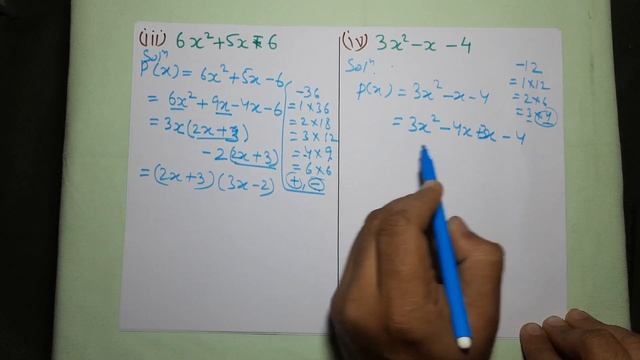 (iii) 6x²+5x-6
Solⁿ
P(x) = 6x²+5x-6
= 6x²+9x-4x-6
= 3x(2x+3)
-2(2x+3)
= (2x+3)(3x-2)
-36
= 1×36
= 2×18
= 3×12
= 4×9
= 6×6
+, -
(iv) 3x²-x-4
Solⁿ:
P(x) = 3x²-x-4
= 3x²-4x+3x-4
-12
= 1×12
= 2×6
= 3×4